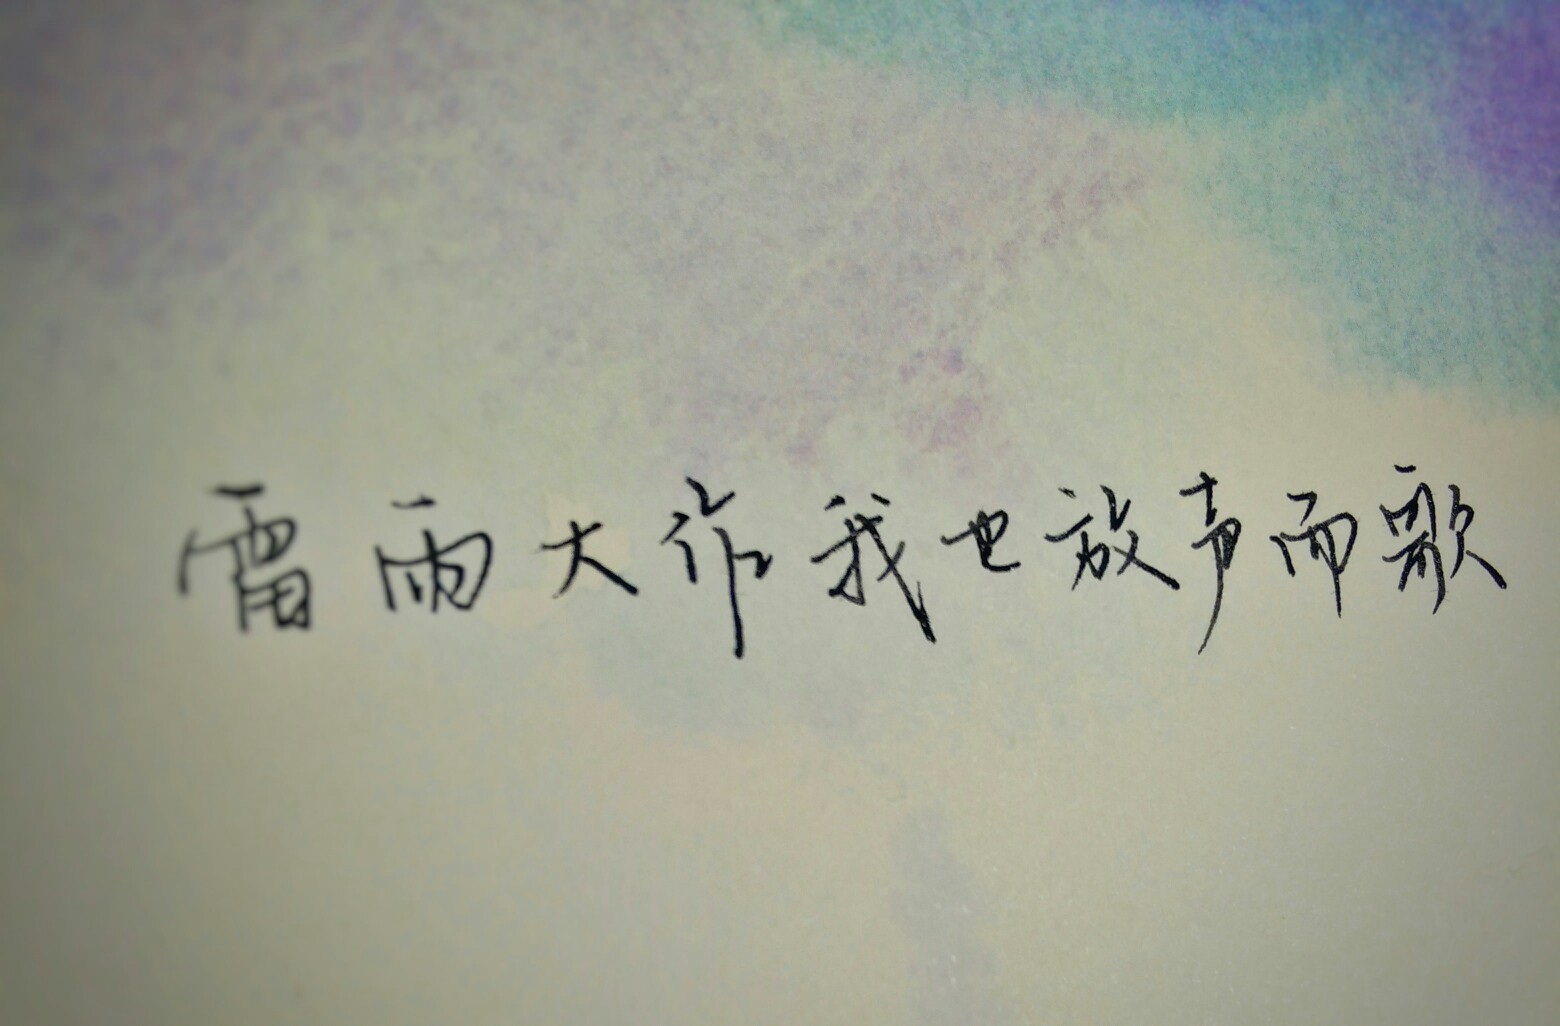 雷雨大作我也放声而歌